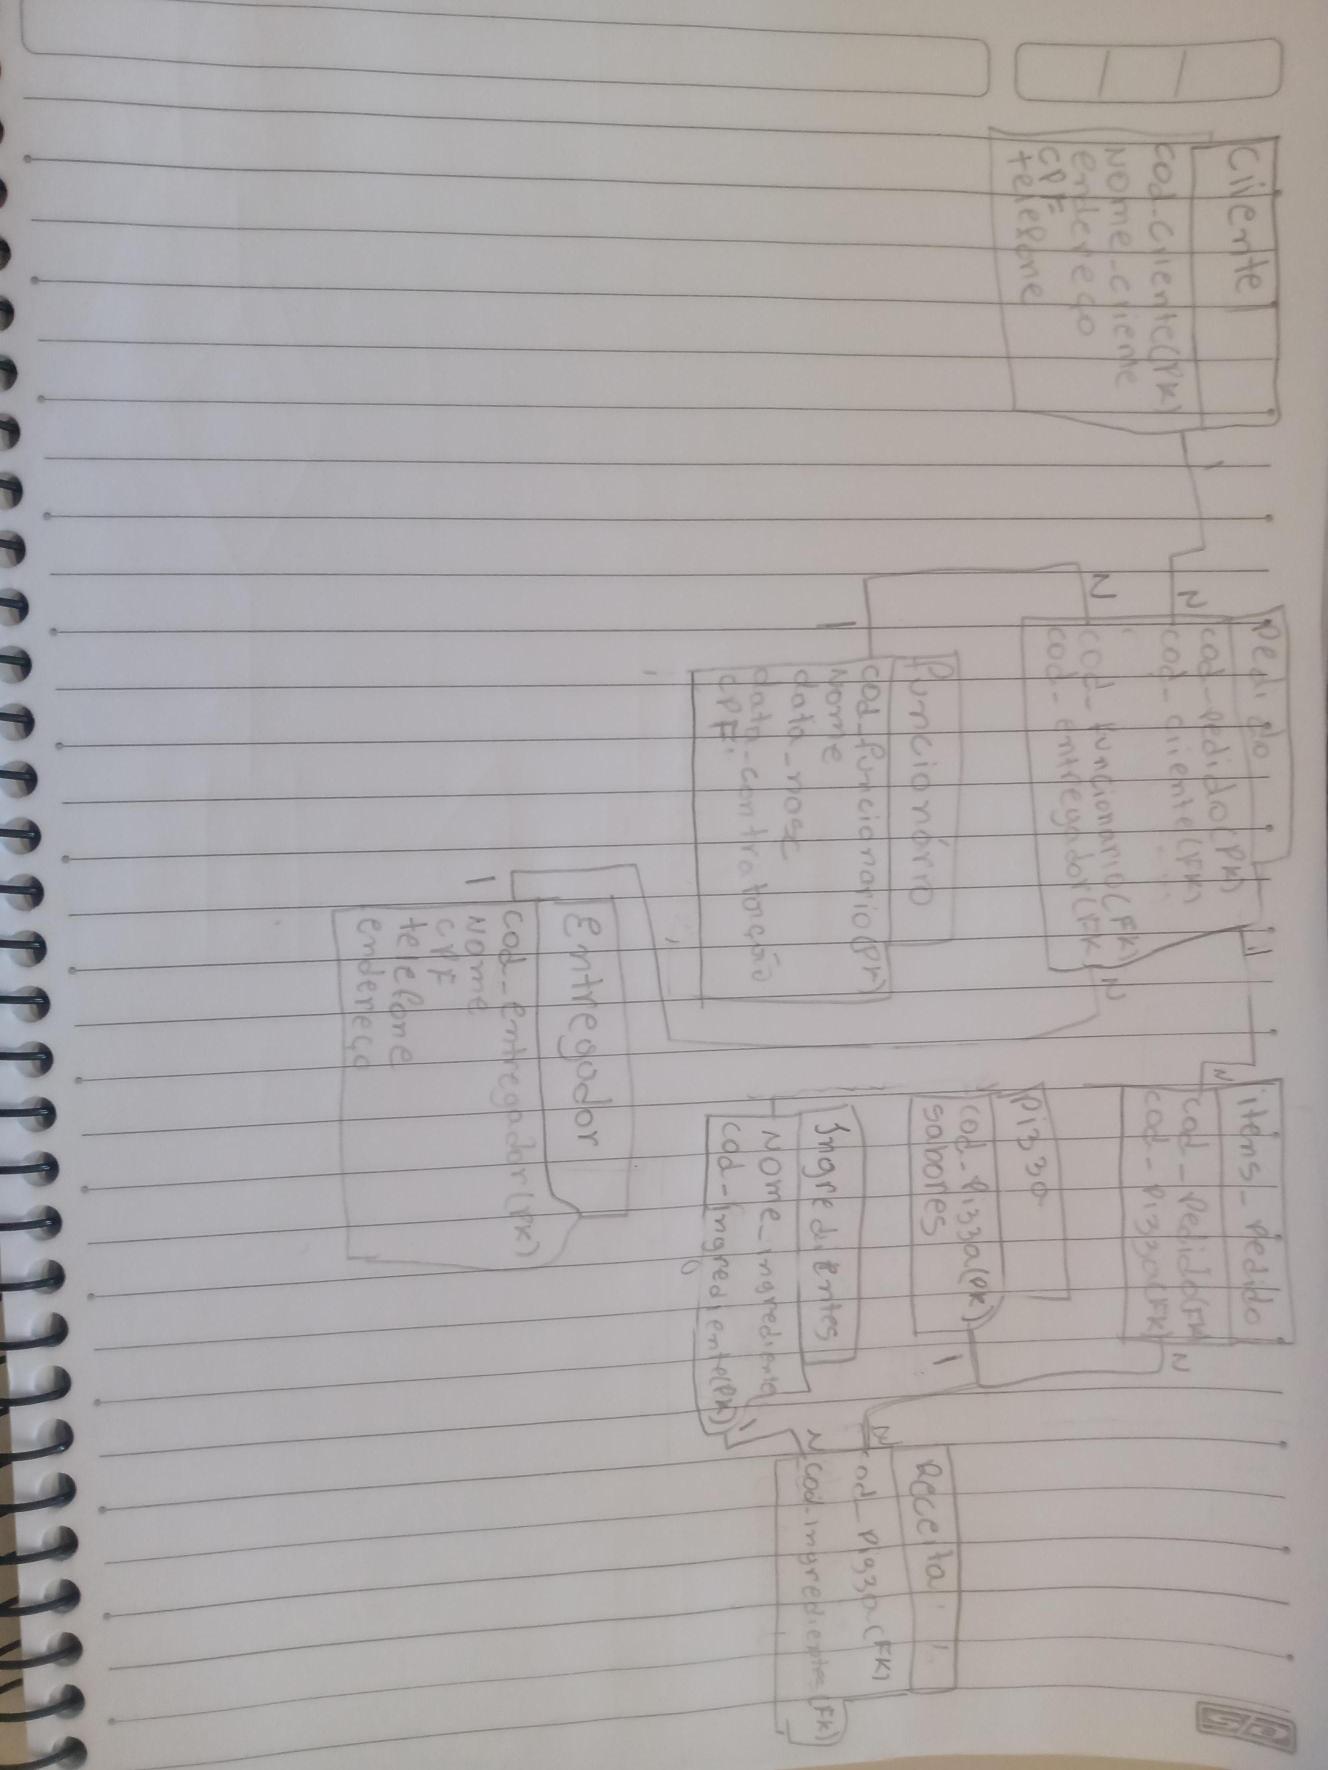 Cliente
cod_cliente(PK)
Nome_cliente
endereço
CPF
telefone
1
N
Pedido
cod_pedido(PK)
cod_cliente(FK)
cod_funcionario(FK)
cod_entregador(FK)
1
N
N
N
itens_pedido
cod_pedido(FK)
cod_pizza(FK)
N
Pizza
cod_pizza(PK)
sabores
1
funcionário
cod_funcionario(PK)
Nome
data_nasc
data_contratação
CPF
1
Ingredientes
Nome_ingrediente
cod_ingrediente(PK)
1
Receita
N
cod_pizza(FK)
N
cod_ingrediente(FK)
Entregador
cod_entregador(PK)
1
Nome
CPF
telefone
endereço